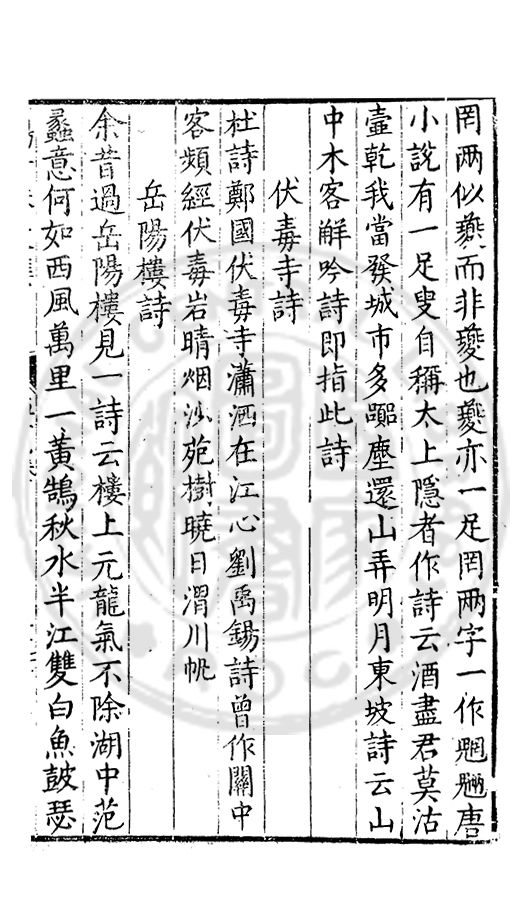 罔两似夔而非夔也夔亦一足罔两字一作魍魎唐
小說有一足叟自稱太上隱者作詩云酒盡君莫沽
壷乾我當發城市多嚻塵還山弄明月東坡詩云山
中木客解吟詩即指此詩
伏毒寺詩
杜詩鄭國伏毒寺瀟洒在江心劉禹錫詩曾作關中
客頻經伏毒岩晴烟沙苑樹曉日渭川帆
岳陽樓詩
余昔過岳陽樓見一詩云樓上元龍氣不除湖中范
蠡意何如西風萬里一黃鵠秋水半江雙白魚鼓瑟